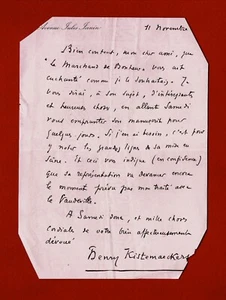 Avenue Jules Janin
11 Novembre
Bien content, mon cher ami, que
"Le Marchand de Bonheur" vous ait
enchanté comme je le souhaitais. Je
vous dirai, à son sujet, d'intéressantes
et heureuses choses, en allant Samedi
vous emprunter son manuscrit pour
quelques jours. Si j'en ai besoin, c'est pour
y noter les grandes lignes de sa mise en
scène. Et ceci vous indique (en confidence)
que sa représentation va devancer encore
le moment prévu par mon traité avec
le Vaudeville.
A Samedi donc, et mille choses
cordiales de votre bien affectueusement
dévoué
Henry Kistemaeckers